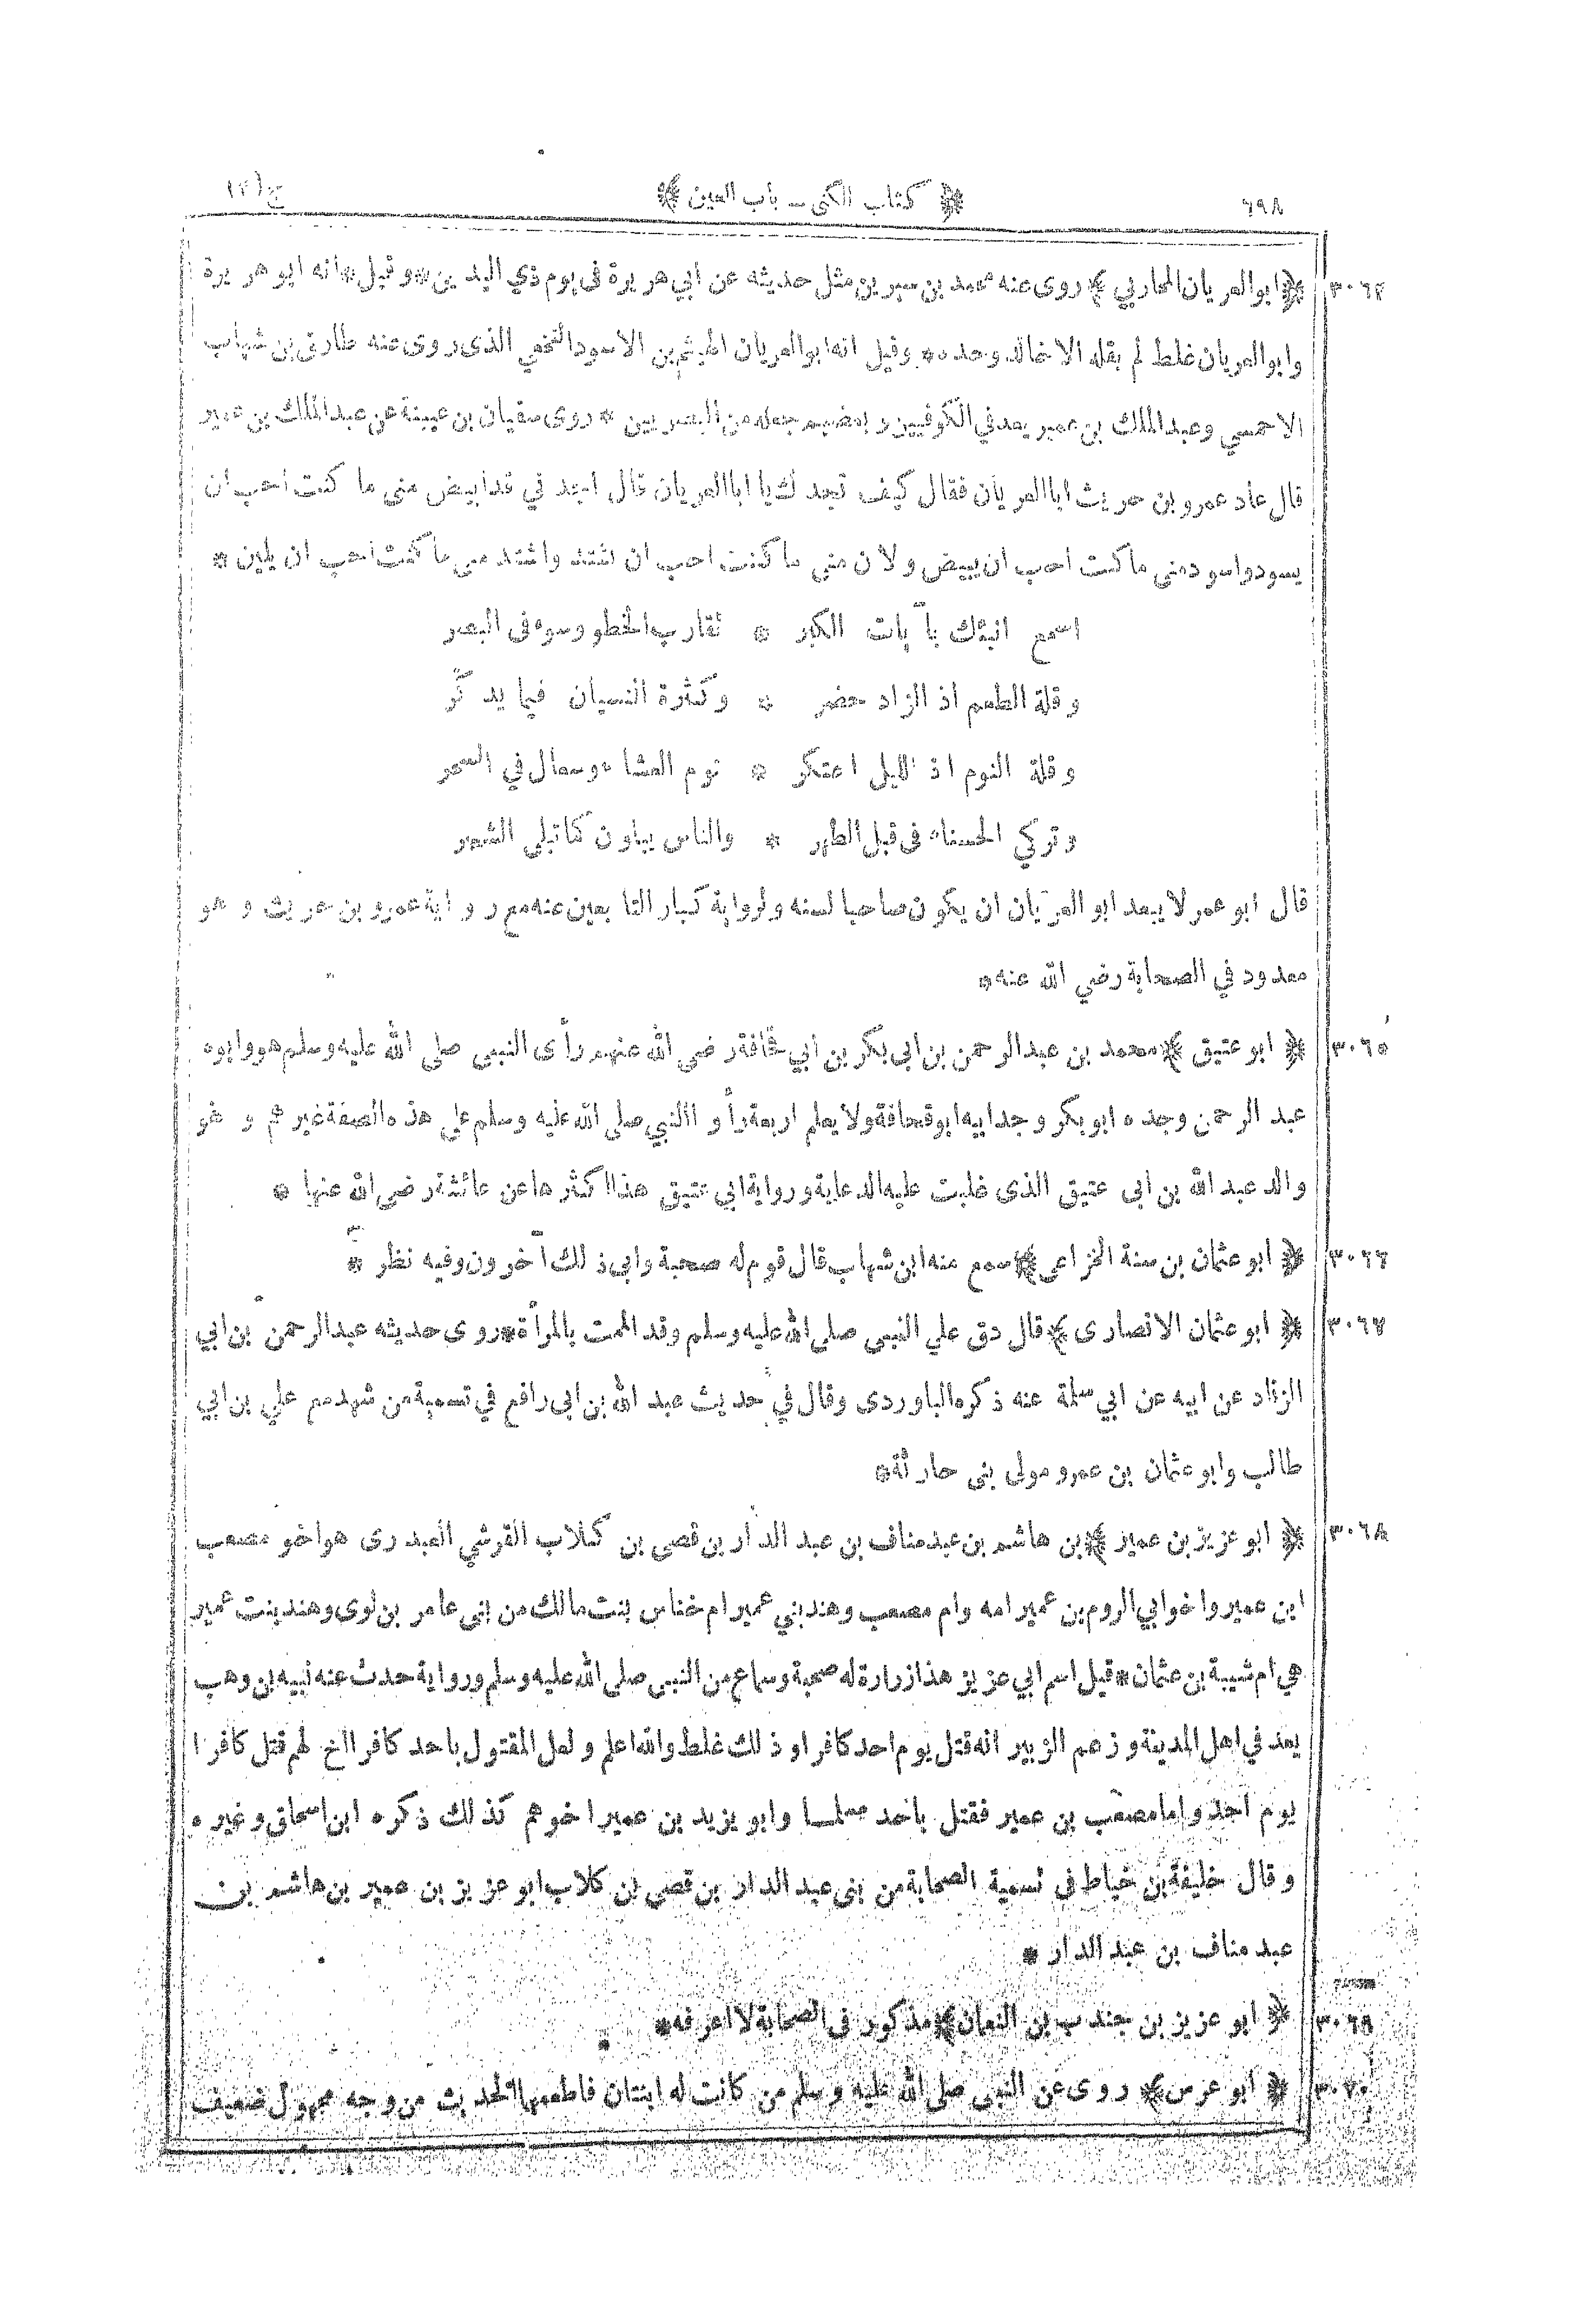 ٦٩٨ ﴿ كتاب الكنى – باب العين ﴾ ج (٢)
٣٠٦٤ ﴿ ابو العريان المحاربي ﴾ روى عنه محمد بن سيرين مثل حديثه عن أبي هريرة فى يوم ذي اليدين * وقيل * انه ابو هريرة
وابو العريان غلط لم يقله الا خالد وحده * وقيل انه ابو العريان الهيثم بن الاسود النخعي الذى روى عنه طارق بن شهاب
الاحمسي وعبد الملك بن عمير يعد في الكوفيين وبعضهم جعله من البصريين * روى سفيان بن عيينة عن عبد الملك بن عمير
قال عاد عمرو بن حريث ابا العريان فقال كيف تجدك يا ابا العريان قال اجد في قد ابيض منى ما كنت احب ان
يسود واسود منى ما كنت احب ان يبيض ولان منى ما كنت احب ان يشتد واشتد منى ما كنت احب ان يلين *
اسمع انبئك بآيات الكبر * تقارب الخطو وسوء فى البصر
وقلة الطعم اذ الزاد حضر * وكثرة النسيان فيما يدكر
وقلة النوم اذ الليل اعتكر * نوم العشاء وسعال في السحر
وتركي الحسناء فى قبل الطهر * والناس يبلون كما تبلى الشجر
قال ابو عمر لا يبعد ابو العريان ان يكون صاحبا لسنه ولرواية كبار التابعين عنه مع رواية عمرو بن حريث وهو
معدود في الصحابة رضي الله عنه *
٣٠٦٥ ﴿ ابو عتيق ﴾ محمد بن عبد الرحمن بن ابى بكر بن أبي قحافة رضى الله عنهم رأى النبي صلى الله عليه وسلم هو وابوه
عبد الرحمن وجده ابو بكر وجد ابيه ابو قحافة ولا يعلم اربعة رأوا النبي صلى الله عليه وسلم على هذه الصفة غيرهم وهو
والد عبد الله بن ابى عتيق الذى غلبت عليه الدعابة ورواية ابي عتيق هذا اكثرها عن عائشة رضى الله عنها *
٣٠٦٦ ﴿ ابو عثمان بن سنة الخزاعى ﴾ سمع منه ابن شهاب قال قوم له صحبة وابى ذلك آخرون وفيه نظر *
٣٠٦٧ ﴿ ابو عثمان الانصارى ﴾ قال دق علي النبي صلى الله عليه وسلم وقد الممت بالمرأة * روى حديثه عبد الرحمن بن ابي
الزناد عن ابيه عن ابي سلمة عنه ذكره الباوردى وقال في حديث عبد الله بن ابى رافع في تسمية من شهد مع علي بن ابي
طالب وابو عثمان بن عمرو مولى بنى حارثة *
٣٠٦٨ ﴿ ابو عزيز بن عمير ﴾ بن هاشم بن عبد مناف بن عبد الدار بن قصى بن كلاب القرشي العبدرى هو اخو مصعب
ابن عمير واخو ابي الروم بن عمير امه وام مصعب وهند بني عمير ام خناس بنت مالك من بنى عامر بن لوى وهند بنت عمير
هي ام شيبة بن عثمان * قيل اسم ابي عزيز هذا زرارة له صحبة وسماع من النبي صلى الله عليه وسلم ورواية حدث عنه نبيه بن وهب
يعد في اهل المدينة وزعم الزبير انه قتل يوم احد كافرا وذلك غلط والله اعلم ولعل المقتول باحد كافرا اخ لهم قتل كافرا
يوم احد واما مصعب بن عمير فقتل باحد مسلما وابو يزيد بن عمير اخوهم كذلك ذكره ابن اسحاق وغيره
وقال خليفة بن خياط فى تسمية الصحابة من بنى عبد الدار بن قصى بن كلاب ابو عزيز بن عمير بن هاشم بن
عبد مناف بن عبد الدار *
٣٠٦٩ ﴿ ابو عزيز بن جندب بن النعمان ﴾ مذكور فى الصحابة لا اعرفه *
٣٠٧٠ ﴿ ابو عرس ﴾ روى عن النبي صلى الله عليه وسلم من كانت له ابنتان فاطعمهما الحديث من وجه مجهول ضعيف